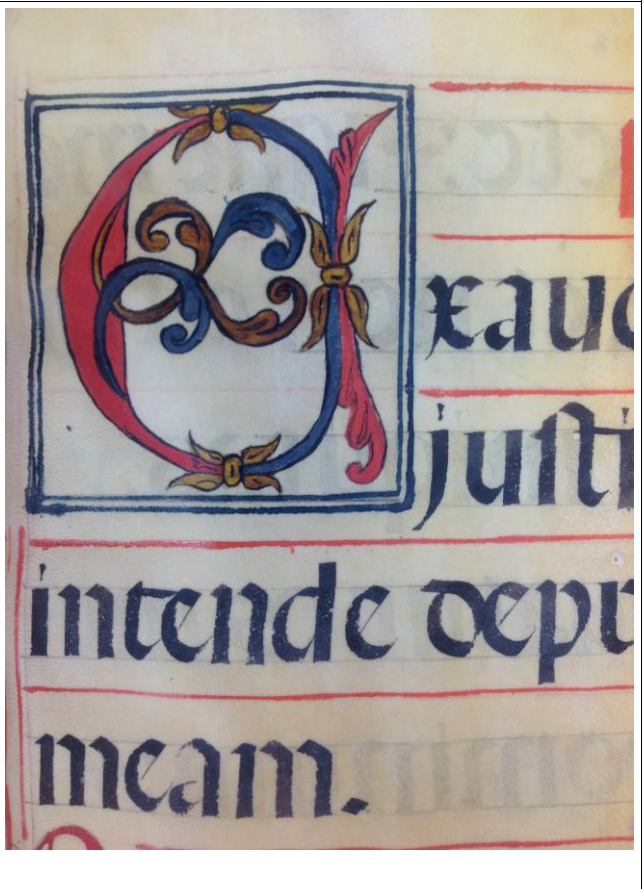 Exaud
juſti
intende depr
meam.